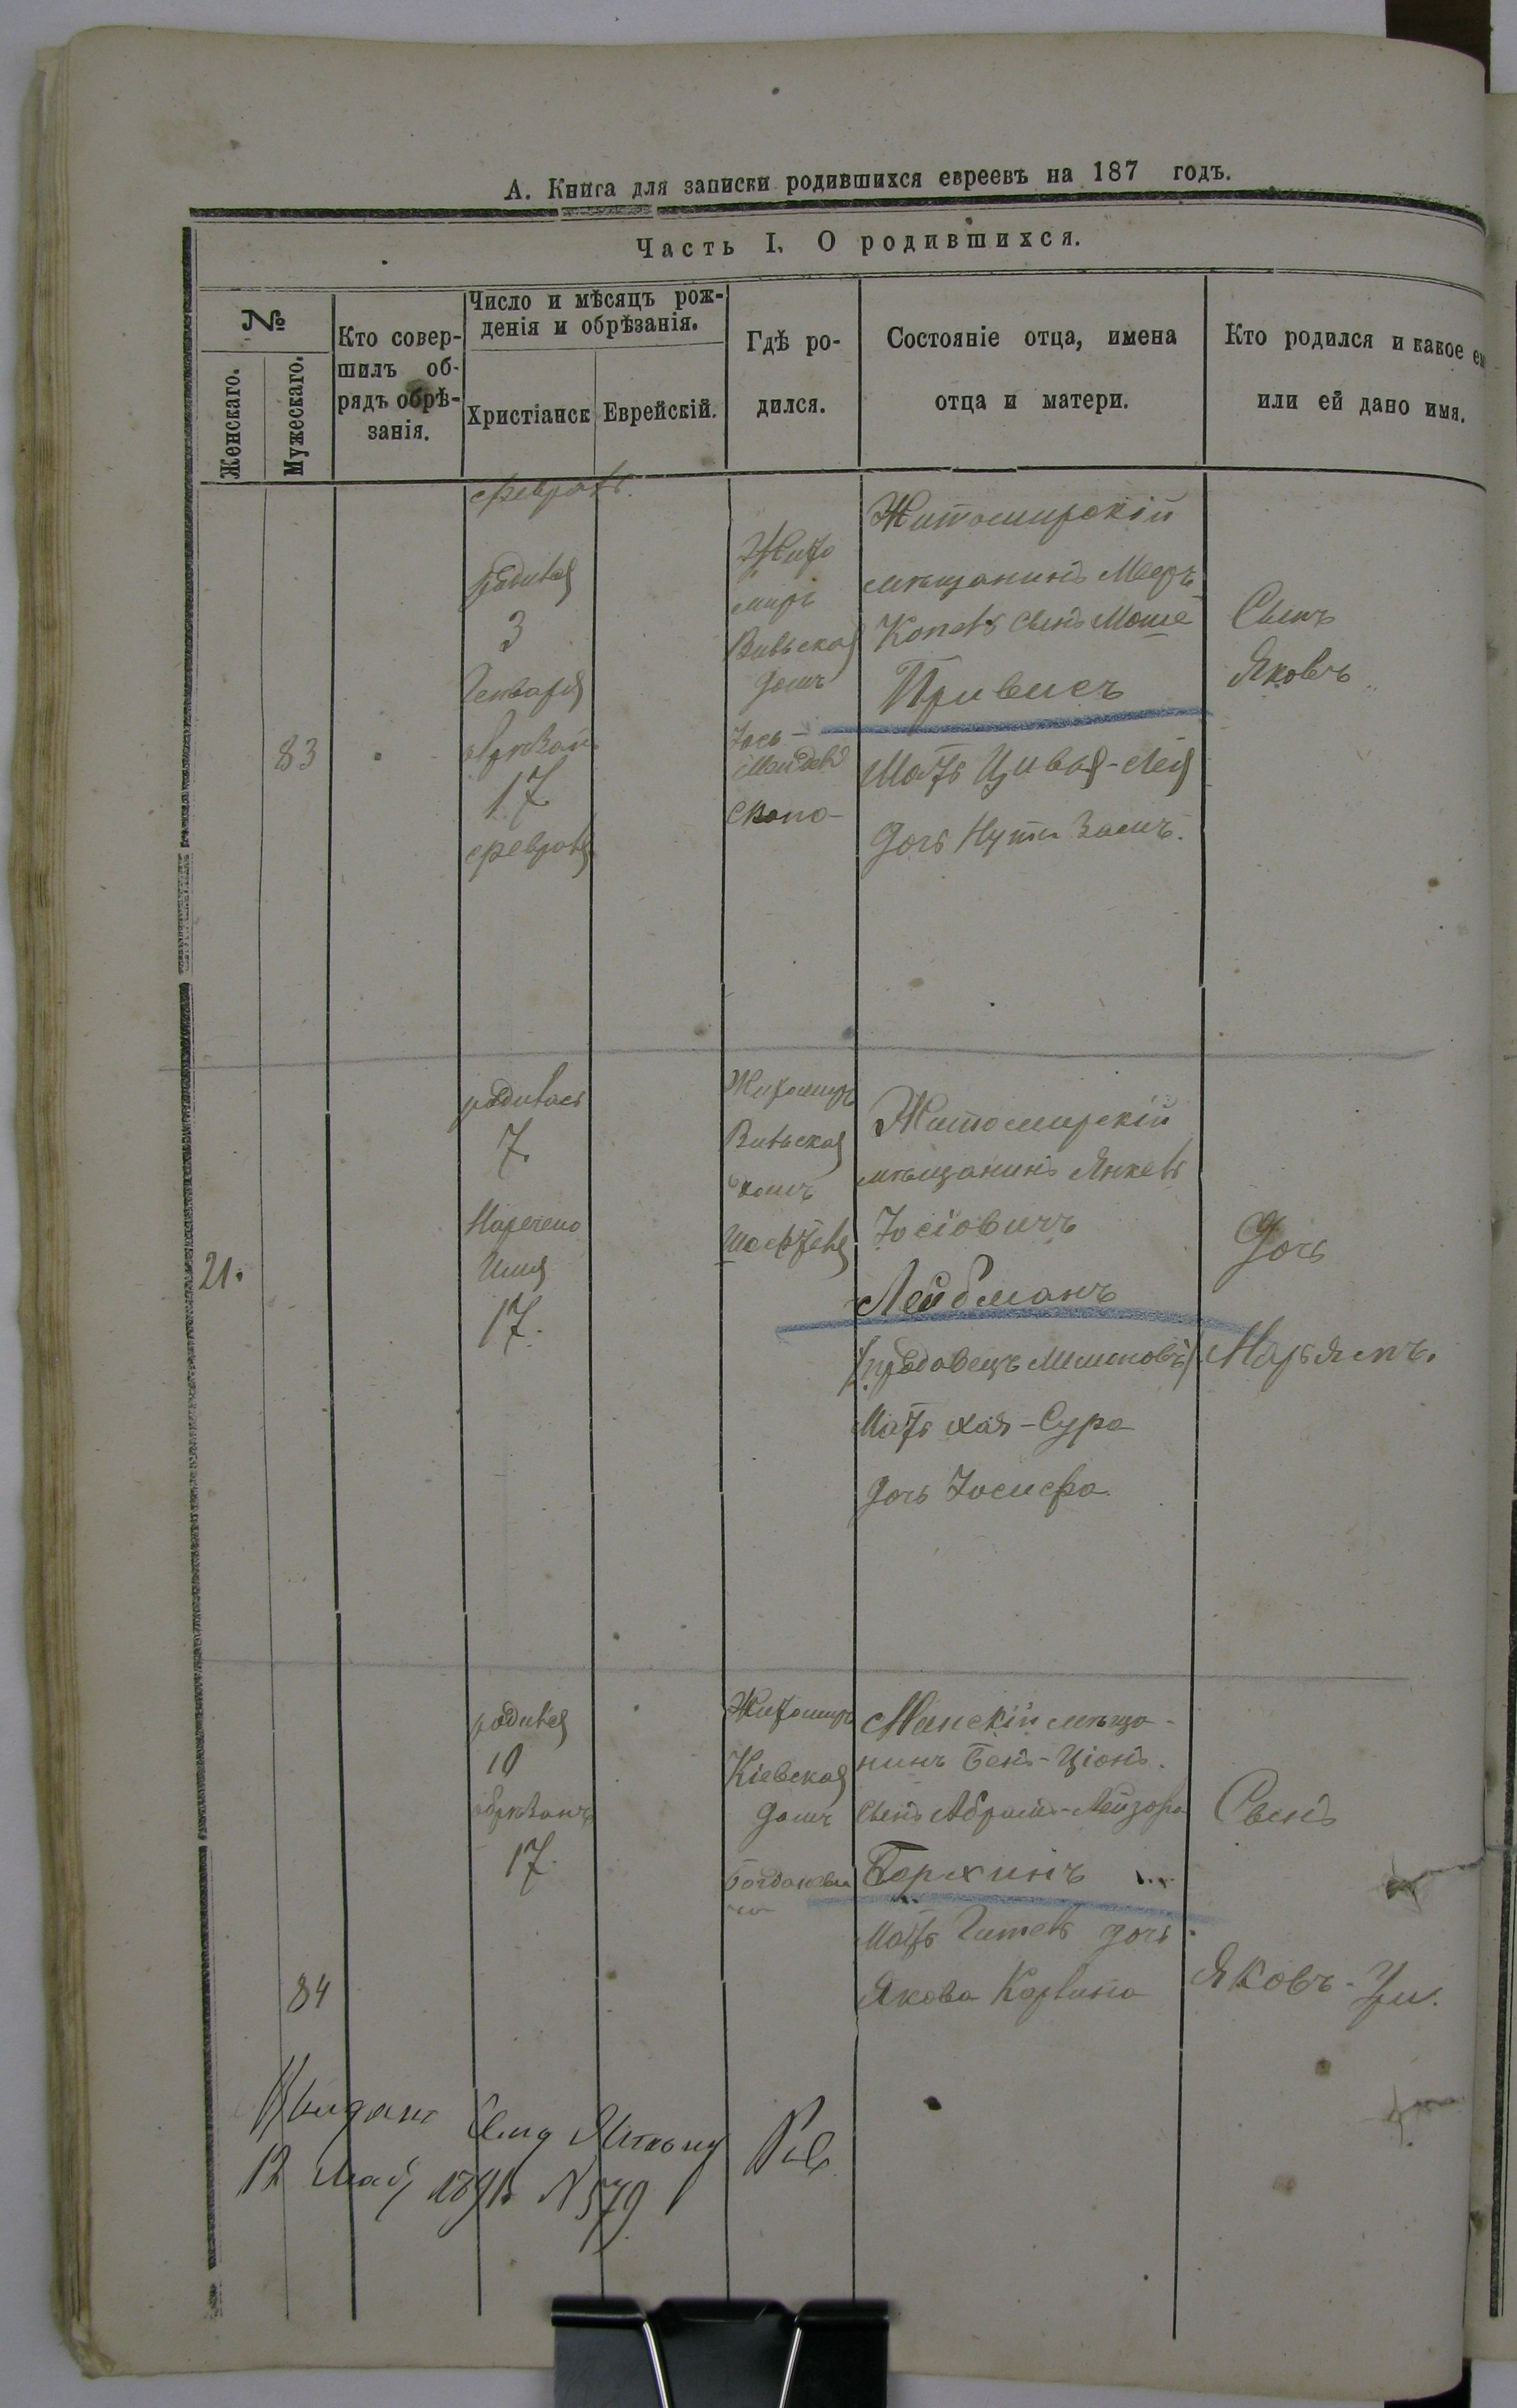 А. Книга для записки родившихся евреевъ на 187 годъ.
Часть I. О родившихся.
№
Женскаго.
Мужескаго.
Кто совер-
шилъ об-
рядъ обрѣ-
занія.
Число и мѣсяцъ рож-
денія и обрѣзанія.
Христіанск
Еврейскій.
Гдѣ ро-
дился.
Состояніе отца, имена
отца и матери.
Кто родился и какое ем
или ей дано имя.
Февраль.
83
родился
3
Генваря
обрѣзан
17
Февраля
Жито
миръ
Вильская
домъ
Іось-
Мендель
Житомирскій
мѣщанинъ Мееръ
Копель сынъ Моше
Привисъ
Мать Цивья-Лея
дочь Нуты Зальм.
Сынъ
Яковъ
21.
родилась
7.
Наречено
Имя
17.
Житомиръ
Вильская
домъ
Житомирскій
мѣщанинъ Янкель
Іосіовичъ
Лейбманъ
Мать Хая-Сура
дочь Іосифа
Дочь
Марьямъ.
84
родился
10
обрѣзанъ
17.
Житомиръ
Кіевская
домъ
Минскій мѣща-
нинъ Бенъ-Ціонъ.
сынъ Абрамъ-Лейзора
Борхинъ
Мать Гитель дочь
Якова Карлина
Сынъ
Яковъ-Ури.
Выданъ
12 Мая 1891 N 579